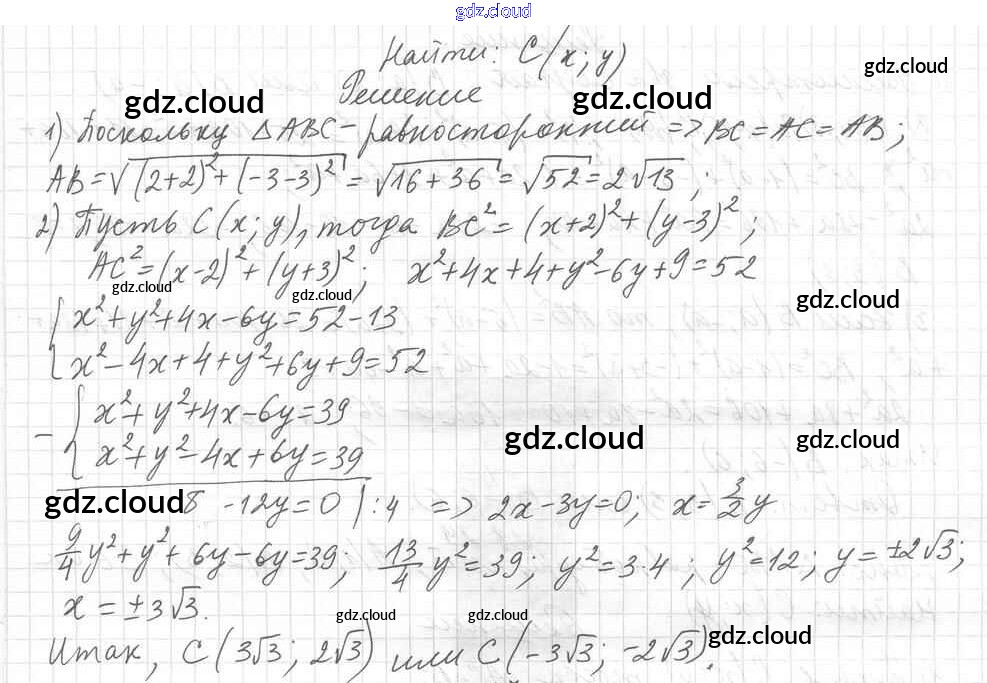 gdz.cloud
Найти: C(x; y)
gdz.cloud
Решение
gdz.cloud gdz.cloud
1) Поскольку △ABC - равносторонний => BC = AC = AB;
AB = √((2+2)² + (-3-3)²) = √(16+36) = √52 = 2√13;
2) Пусть C(x; y), тогда BC² = (x+2)² + (y-3)²;
AC² = (x-2)² + (y+3)²; x² + 4x + 4 + y² - 6y + 9 = 52
gdz.cloud gdz.cloud gdz.cloud
{ x² + y² + 4x - 6y = 52 - 13
x² - 4x + 4 + y² + 6y + 9 = 52
- { x² + y² + 4x - 6y = 39
x² + y² - 4x + 6y = 39
gdz.cloud gdz.cloud
gdz.cloud 8 - 12y = 0 | : 4 => 2x - 3y = 0; x = 3/2 y
9/4 y² + y² + 6y - 6y = 39; 13/4 y² = 39; y² = 3·4; y² = 12; y = ±2√3;
x = ±3√3.
gdz.cloud gdz.cloud gdz.cloud
Итак, C(3√3; 2√3) или C(-3√3; -2√3).